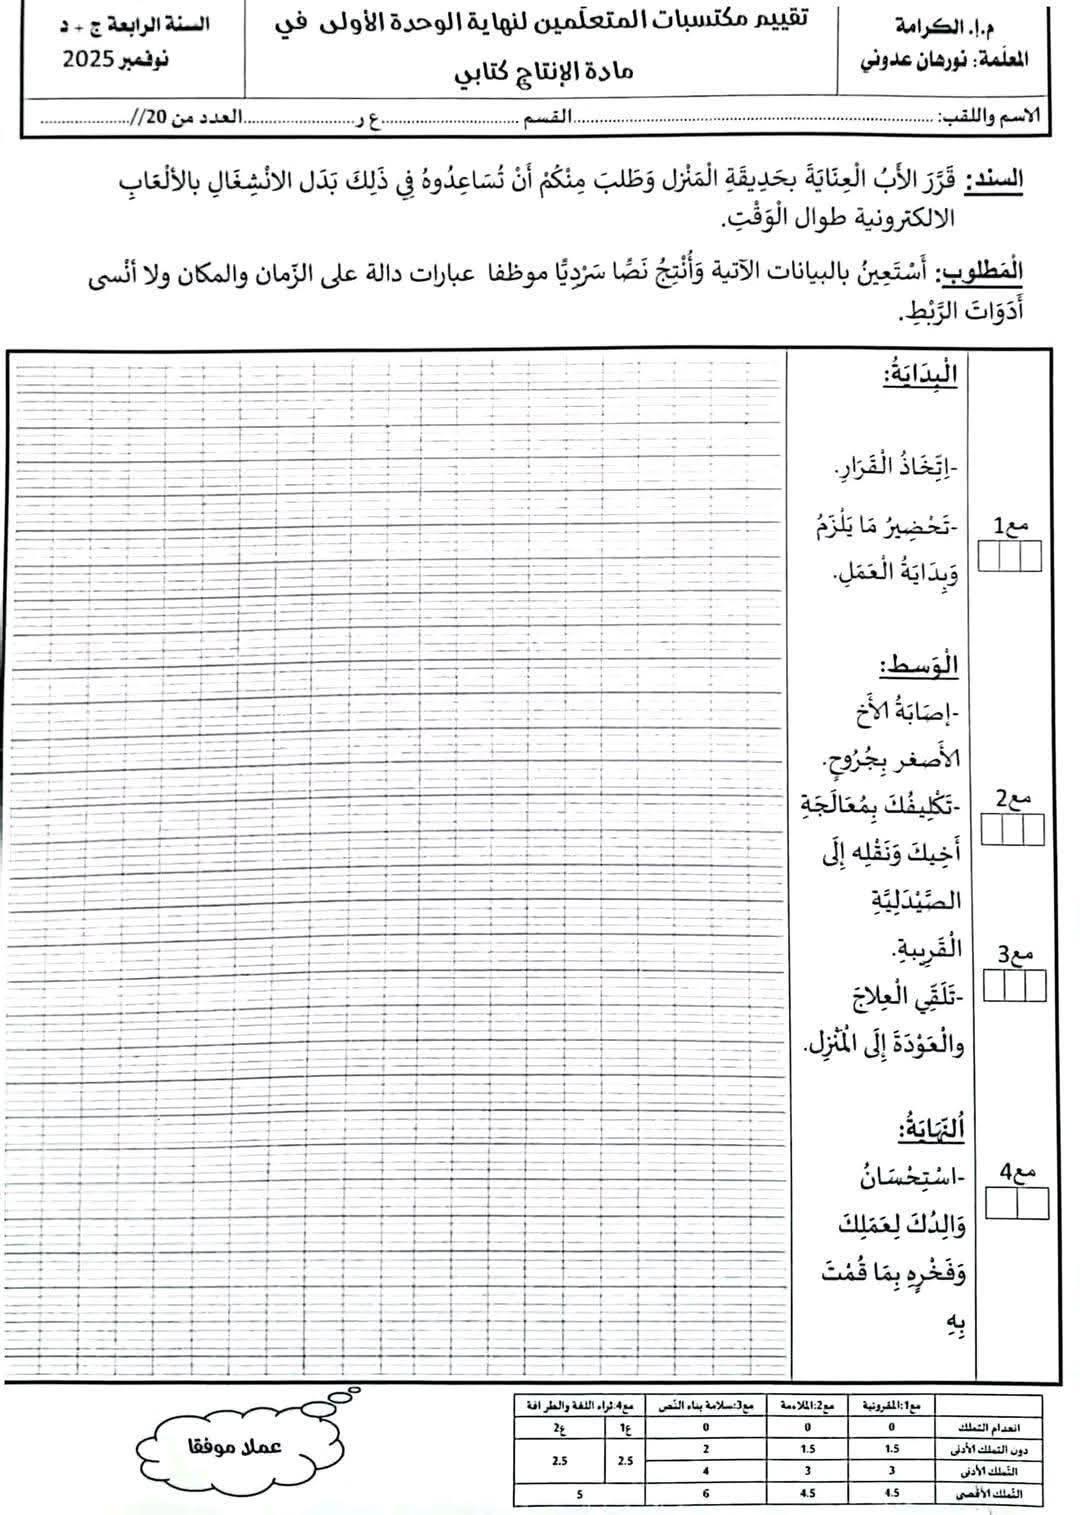 م.إ. الكرامة
المعلّمة: نورهان عدوني
تقييم مكتسبات المتعلّمين لنهاية الوحدة الأولى في
مادة الإنتاج كتابي
السنة الرابعة ج + د
نوفمبر 2025
الاسم واللقب: القسم ع ر العدد من 20//
السند: قَرَّرَ الأَبُ الْعِنَايَةَ بحَدِيقَةِ الْمَنْزل وَطَلبَ مِنْكُمْ أَنْ تُسَاعِدُوهُ فِي ذَلِكَ بَدَل الانْشِغَالِ بالألْعَابِ
الالكترونية طوال الْوَقْتِ.
الْمَطلوب: أَسْتَعِينُ بالبيانات الآتية وَأُنْتِجُ نَصًّا سَرْدِيًّا موظفا عبارات دالة على الزمان والمكان ولا أنْسى
أَدَوَاتَ الرَّبْطِ.
الْبِدَايَةُ:
-اِتِّخَاذُ الْقَرَارِ.
-تَحْضِيرُ مَا يَلْزَمُ
وَبِدَايَةُ الْعَمَلِ.
مع1
الْوَسط:
-إصَابَةُ الأَخ
الأَصغر بِجُرُوحٍ.
-تَكْلِيفُكَ بِمُعَالَجَةِ
أَخِيكَ وَنَقْلِه إِلَى
الصَّيْدَلِيَّةِ
الْقَرِيبةِ.
مع2
مع3
-تَلَقِّي الْعِلاجَ
والْعَوْدَةَ إِلَى الْمَنْزِل.
اُلنّهَايَةُ:
-اسْتِحْسَانُ
وَالِدُكَ لِعَمَلِكَ
وَفَخْرِهِ بِمَا قُمْتَ
بِهِ
مع4
مع1:المقرونية مع2:الملاءمة مع3:سلامة بناء النّص مع4:ثراء اللغة والطرافة
انعدام التملك 0 0 0 ع1 ع2
دون التملك الأدنى 1.5 1.5 2 2.5 2.5
التّملك الأدنى 3 3 4
التّملك الأقصى 4.5 4.5 6 5
عملا موفقا